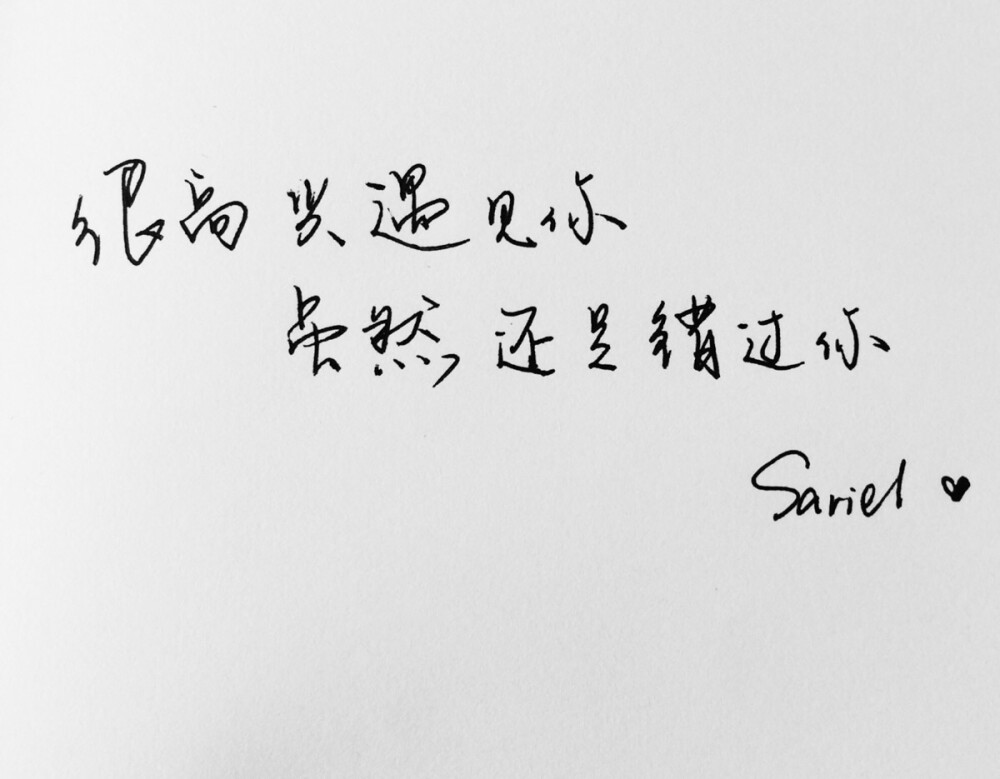 很高兴遇见你
虽然还是错过你
Sariel